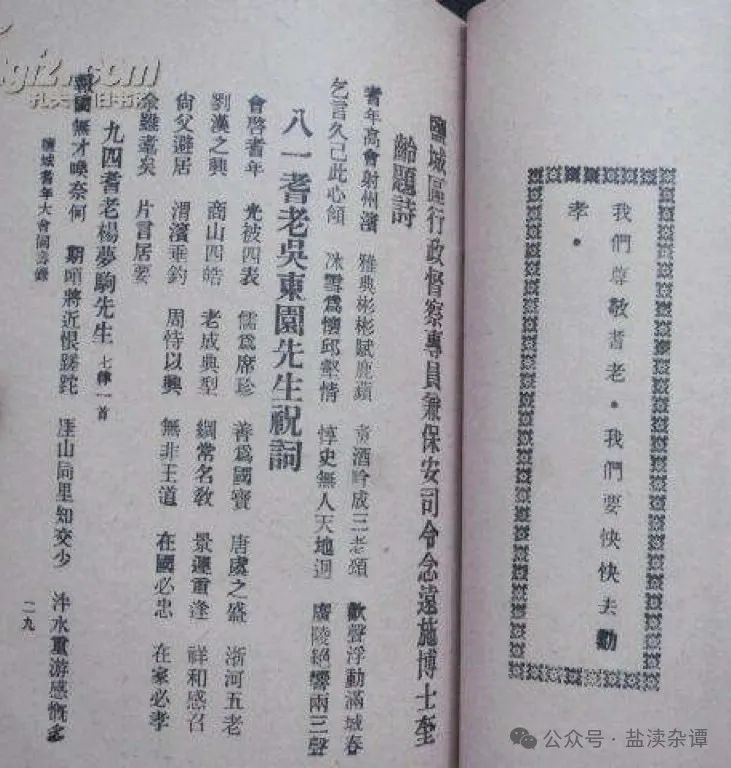 我們尊敬耆老。我們要快快去勸
孝。
鹽城區行政督察專員兼保安司令念遠施博士奎
齡題詩
耆年高會射州濱 雅典彬彬賦鹿蘋 酒吟成三老頌 歡聲浮動滿城春
乞言久已此心傾 冰雪爲懷邱壑情 惇史無人天地迥 廣陵絕響兩三聲
八一耆老吳東園先生祝詞
會啓耆年 光被四表 儒爲席珍 善爲國寶 唐虞之盛 浙河五老
劉漢之興 商山四皓 老成典型 綱常名敎 景運重逢 祥和感召
尙父避居 渭濱垂釣 周恃以興 無非王道 在國必忠 在家必孝
余雖耄矣 片言居要
九四耆老楊夢駒先生 七律一首
報國無才喚奈何 期頤將近恨蹉跎 崖山同里知交少 泮水重游感慨多
鹽城耆年大會
二九
公众号·盐渎杂谭